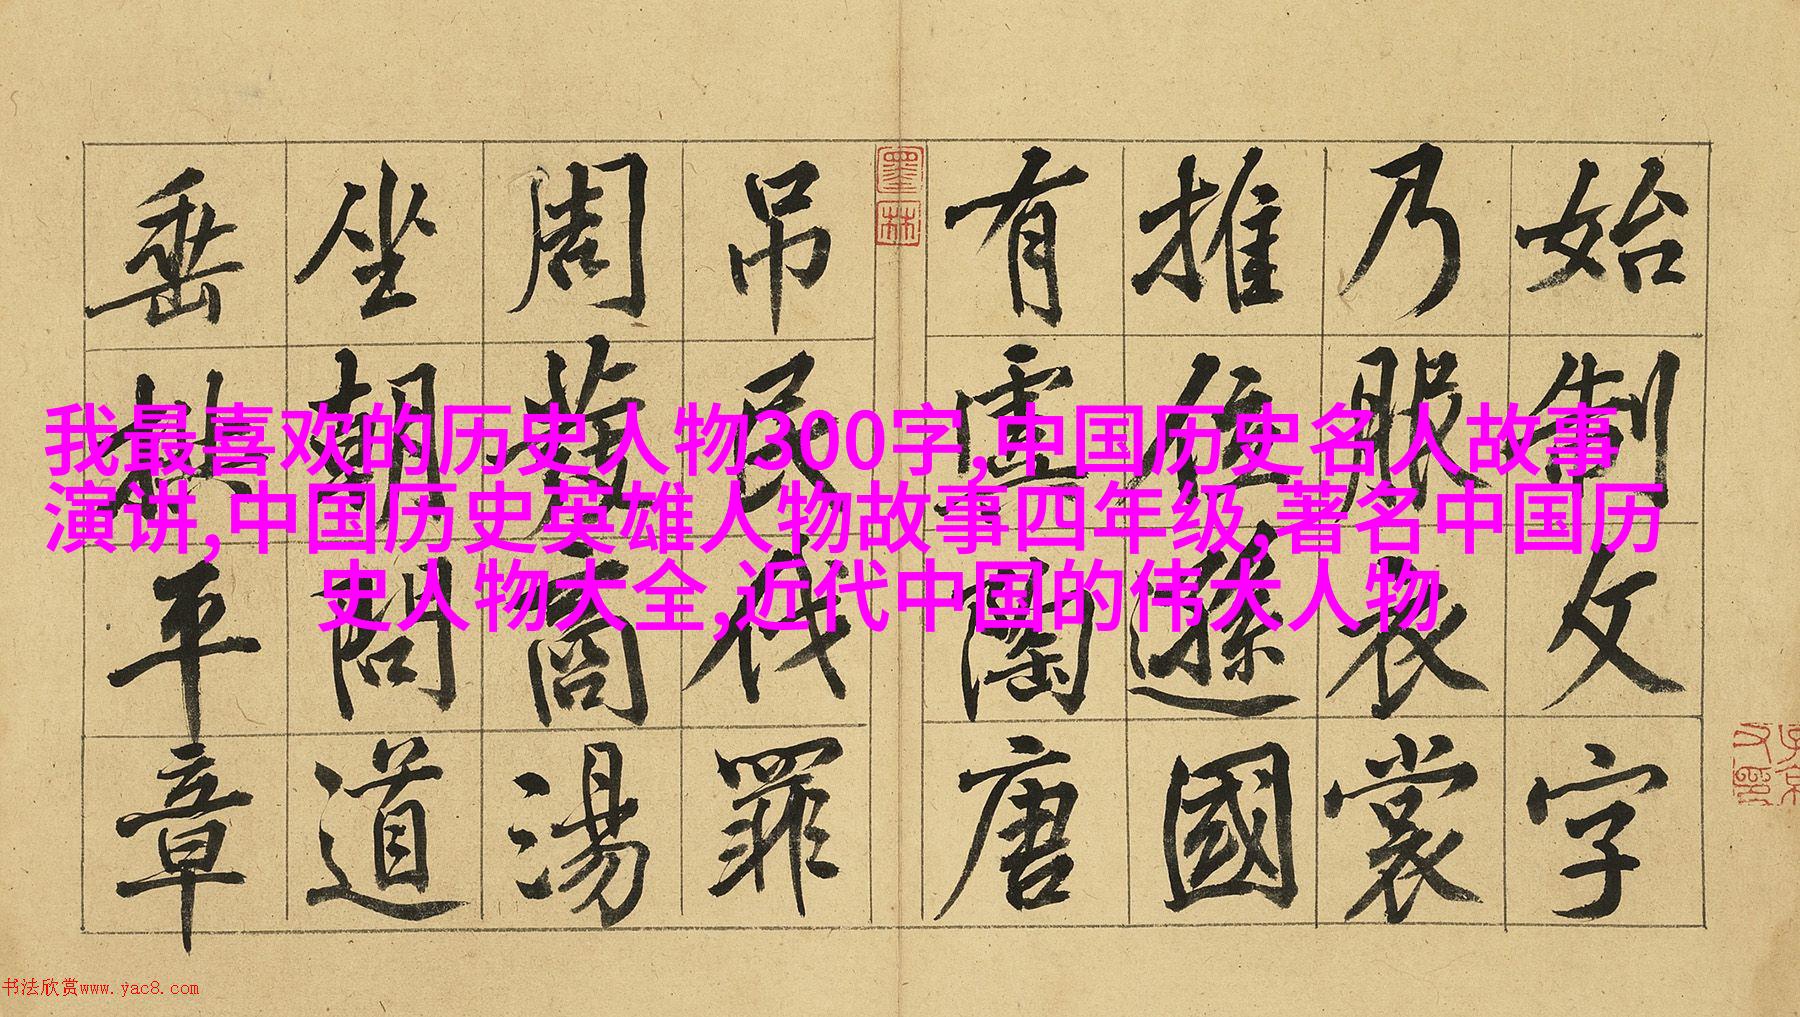 我最喜欢的历史人物300字,中国历史名人故事
演讲,中国历史英雄人物故事四年级,著名中国历
史人物大全,近代中国的伟大人物
始制文字
乃服衣裳
推位遜國
有虞陶唐
吊民伐罪
周發商湯
坐朝問道
垂拱平章
墨林
书法欣赏www.yac8.com